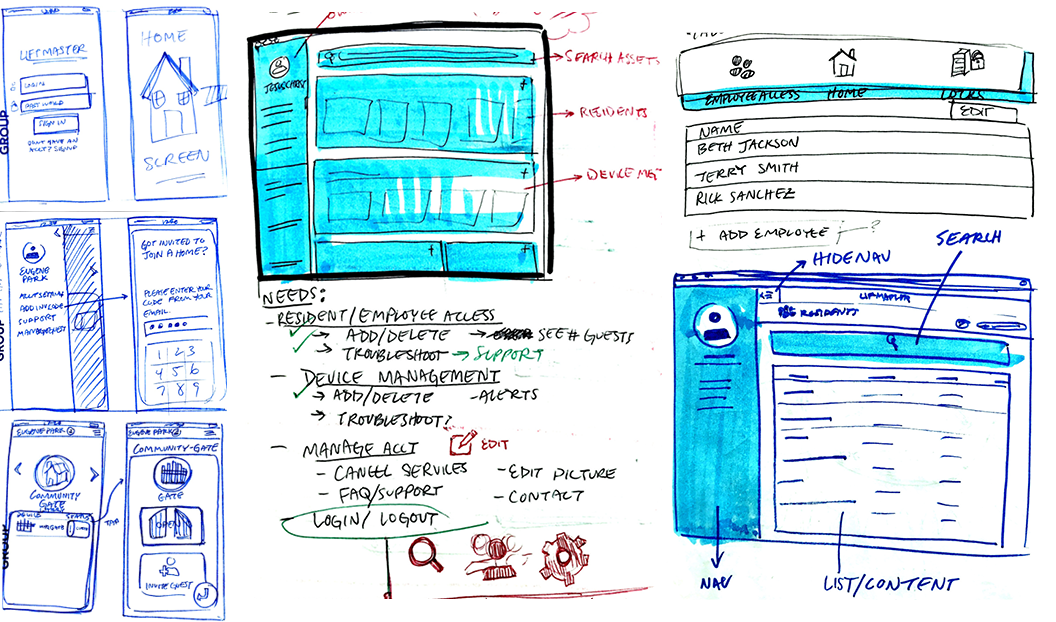 LIFTMASTER
LOGIN
PASSWORD
SIGN IN
DON'T HAVE AN
ACCT? SIGNUP
HOME
SCREEN
GROUP
EUGENE
PARK
ACCT SETTING
ADD INV CODE
SUPPORT
GOT INVITED TO
JOIN A HOME?
PLEASE ENTER YOUR
CODE FROM YOUR
EMAIL.
1 2 3
4 5 6
7 8 9
GROUP
EUGENE PARK
COMMUNITY
GATE
DEVICE STATUS
TAP
EUGENE PARK
COMMUNITY-GATE
GATE
OPEN
INVITE GUEST
GROUP
SEARCH ASSETS
RESIDENTS
DEVICE MGT
NEEDS:
- RESIDENT/EMPLOYEE ACCESS
→ ADD/DELETE → SEE # GUESTS
→ TROUBLESHOOT → SUPPORT
- DEVICE MANAGEMENT
→ ADD/DELETE - ALERTS
→ TROUBLESHOOT?
- MANAGE ACCT EDIT
- CANCEL SERVICES - EDIT PICTURE
- FAQ/SUPPORT - CONTACT
LOGIN/LOGOUT
EMPLOYEE ACCESS HOME LOCKS
EDIT
NAME
BETH JACKSON
TERRY SMITH
RICK SANCHEZ
+ ADD EMPLOYEE ?
SEARCH
HIDE NAV
LIFTMASTER
RESIDENTS
NAV
LIST/CONTENT